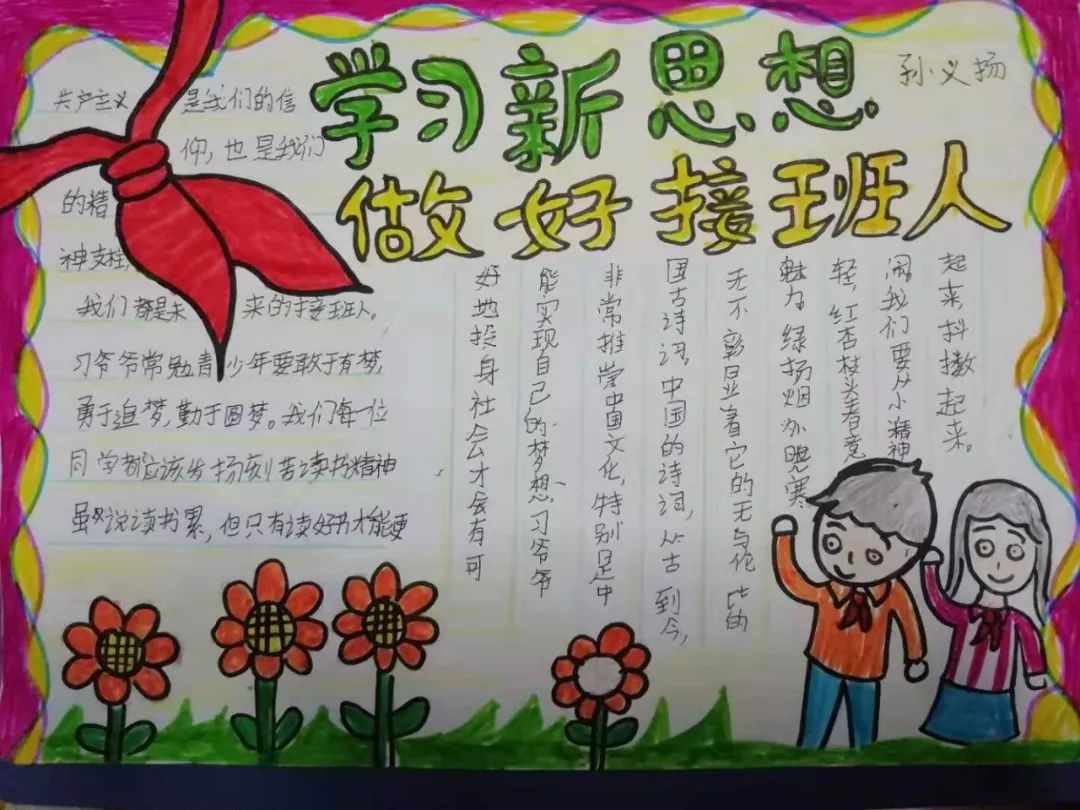 学习新思想
做好接班人
孙义扬
共产主义是我们的信
仰,也是我们
的精
神支柱,
我们都是未来的接班人。
习爷爷常勉青少年要敢于有梦,
勇于追梦,勤于圆梦。我们每一位
同学都应该发扬刻苦读书精神
虽然说读书累,但只有读好书才能更
好地投身社会才会有可
能实现自己的梦想、习爷爷
非常推崇中国文化,特别是中
国古诗词,中国的诗词,从古到今,
无不彰显着它的无与伦比的
魅力 绿扬烟外晚寒
轻,红杏枝头春意
闹我们要从小精神
起来,抖擞起来。